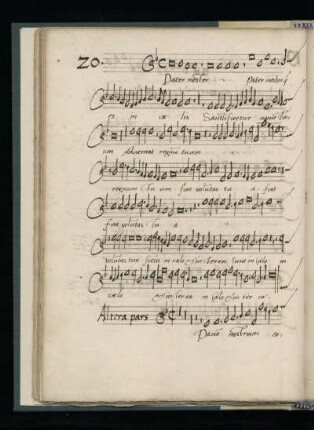 20.
Pater noster Pater noster q
es in cæ lis Sanctificetur nomē tu
um Adveniat regnū tuum
regnum tu um fiat voluntas tu a fiat
fiat voluntas tu a
voluntas tua sicut in cælo et in terra sicut in cælo
cælo et in terra in cælo et in ter ra.
Altera pars
Panē nostrum